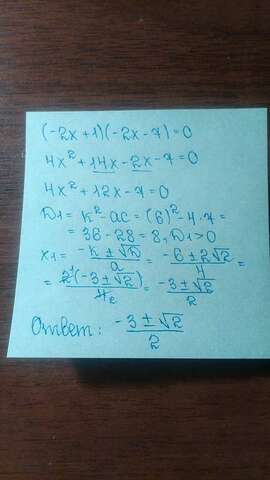 (-2x+1)(-2x-7)=0
4x²+14x-2x-7=0
4x²+12x-7=0
D1=k²-ac=(6)²-4·7=
=36-28=8, D1>0
x1=(-k±√D)/a=(-6±2√2)/4=
=2¹(-3±√2)/4₂=(-3±√2)/2
Ответ: (-3±√2)/2